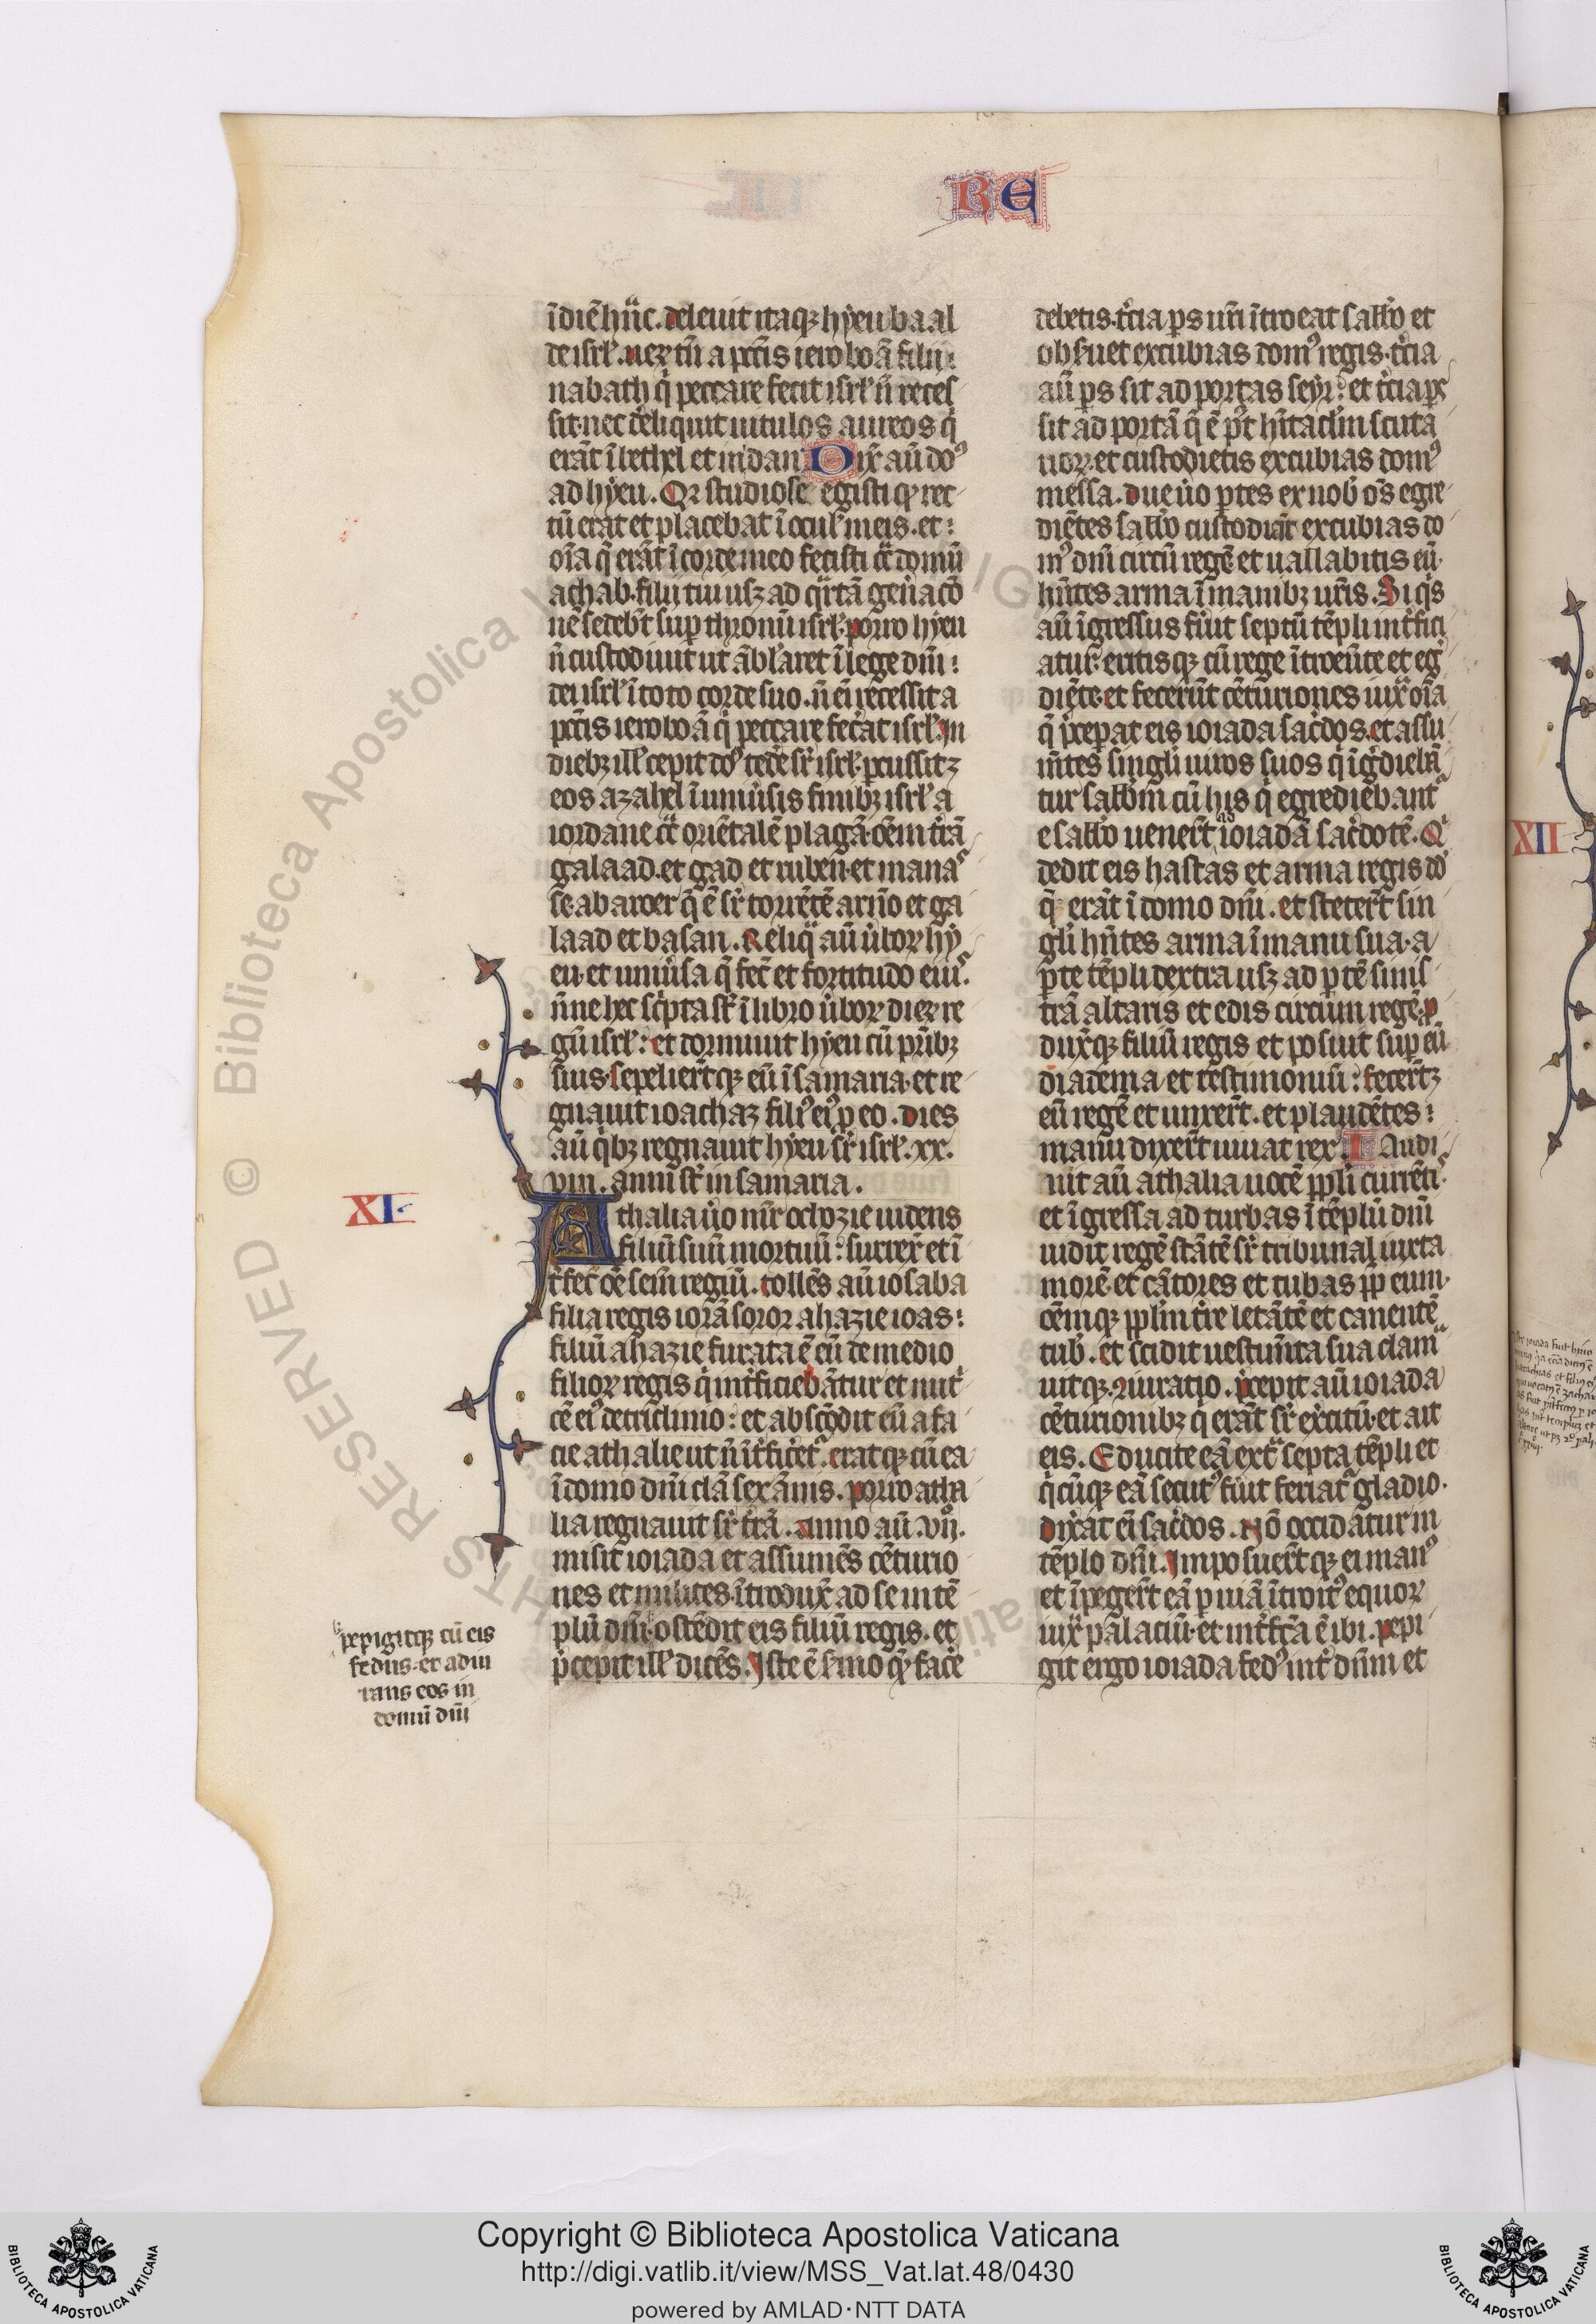 RE
ī diē hāc. deleuit itaqꝫ hyeu baal
de isrl̓. ueꝝ tn̄ a pctīs ieroboā filii:
nabath q̇ peccare fecit isrl̓ n̄ reces
sit. nec dereliquit uitulos aureos q̇
erāt ī bethel et in dan. Dix̄ aū dn̄s
ad hyeu. Qr studiose egisti qꝫ rec
tū erat et placebat ī ocul̓ meis. et:
oīa q̄ erāt ī corde meo fecisti cͣ domū
achab. filii tui usqꝫ ad qͣrtā gen̄acō
nē sedebt̄ sup̄ thronū isrl̓. porro hyeu
n̄ custodiuit ut āblaret ī lege dn̄i:
dei isrl̓ ī toto corde suo. n̄ en̄ recessit a
pctīs ieroboā q̇ peccare fec̄at isrl̓. In
diebꝫ ill̓ cepit dn̄s tedē̓ sr̄ isrl̓. percussitqꝫ
eos azahel ī uniūsis finibꝫ isrl̓ a
iordane cͣ orīētalē plagā. oēm t̄rā
galaad. et gad et ruben. et manas
se. ab aroer q̄ ē sr̄ torrētē arnō et ga
laad et basan. Reliqͣ aū ūboꝝ hy
eu. et uniūsa q̄ fec̄ et fortitudo eius.
n̄ne hec sc̄pta st̄ ī libro ūboꝝ dieꝝ re
gū isrl̓: et dormiuit hyeu cū pr̄ibꝫ
suis. sepelier̄tqꝫ eū ī samaria. et re
gnauit ioachaz filiꝰ eiꝰ ꝓ eo. Dies
aū q̇bꝫ regnauit hyeu sr̄ isrl̓. xx.
viii. anni st̄ in samaria.
XI.
Athalia ūo mr̄ ochozie uidens
filiū suū mortuū: surrex̄ et ī
t̄fec̄ oē sem̄ regiū. tollēs aū iosaba
filia regis iorā soror ahazie ioas:
filiū ahazie furata ē eū de medio
filioꝝ regis q̇ int̄ficiebātur et nut̓
cē eiꝰ de triclinio: et abscōdit eū a fa
cie athalie ut n̄ īt̄ficeret̄. eratqꝫ cū ea
ī domo dn̄i clā sex annis. porro atha
lia regnauit sr̄ t̄rā. Anno aū .vii.
misit ioiada et assumēs cēturio
nes et milites. ītrodux̄ ad se in tē
plū dn̄i. ostēdit eis filiū regis. et
p̄cepit ill̓ dicēs. Iste ē sermo qꝫ facē̓
pepigitqꝫ cū eis
fedus. et adiu
rans eos in
domū dn̄i
debetis. t̄cia ps ur̄i ītroeat sabb̄o et
obseruet excubias domꝰ regis. t̄cia
aū ps sit ad portas seyr: et t̄cia ps
sit ad portā q̄ ē pt̄ hītac̄lm scuta
rioꝝ. et custodietis excubias domꝰ
messa. due ūo ptes ex uob̄ oēs egre
diētes sabb̄o custodiāt excubias do
mꝰ dn̄i circū regē. et uallabitis eū.
hn̄tes arma ī manibꝫ ur̄is. Si q̇s
aū īgressus fūit septū tēpli int̄fici
atur. eritisqꝫ cū rege ītroeūte et eg̓
diēte. et fecer̄unt cēturiones iuxͣ oīa
q̄ p̄cepat eis ioiada sac̄dos. et assu
mētes singl̓i uiros suos q̇ īg̓diebā
tur sabb̄m cū his q̇ egrediebantͬ
e sabb̄o uener̄t ad ioiadā sac̄dotē. Qͥ
dedit eis hastas et arma regis dd̄
q̄ erāt ī domo dn̄i. et steter̄t sin
gl̓i hn̄tes arma ī manu sua. a
pte tēpli dextra usqꝫ ad ptē sinis
trā altaris et edis circum regē. ꝓ
dux̄qꝫ filiū regis et posuit sup̄ eū
diadema et testimoniū: fecer̄tqꝫ
eū regē et unxer̄t. et plaudētes:
manu dixer̄t uiuat rex. Audi
uit aū athalia uocē ppl̓i currētis.
et īgressa ad turbas ī tēplū dn̄i
uidit regē stātē sr̄ tribunal iuxta
morē. et cātores et tubas ꝓp̄ eum.
oēmqꝫ ppl̓m t̄re letātē et canentē
tub̄. et scidit uestim̄ta sua clam
uitqꝫ. 9iuratio. p̄cepit aū ioiada
cēturionibꝫ q̇ erāt sr̄ ex̄citū. et ait
eis. Educite eā extͣ septa tēpli et
q̇cūqꝫ eā secutꝰ fūit feriatͬ gladio.
dix̄at en̄ sac̄dos. Nō occidatur in
tēplo dn̄i. Imposuer̄tqꝫ ei manꝰ
et īpeger̄t eā ꝑ uiā ītroitꝰ equoꝝ
iuxͣ palaciū. et int̄fc̄a ē ibi. pepi
git ergo ioiada fedꝰ int̄ dn̄m et
XII
Copyright © Biblioteca Apostolica Vaticana
http://digi.vatlib.it/view/MSS_Vat.lat.48/0430
powered by AMLAD·NTT DATA
BIBLIOTECA APOSTOLICA VATICANA
BIBLIOTECA APOSTOLICA VATICANA